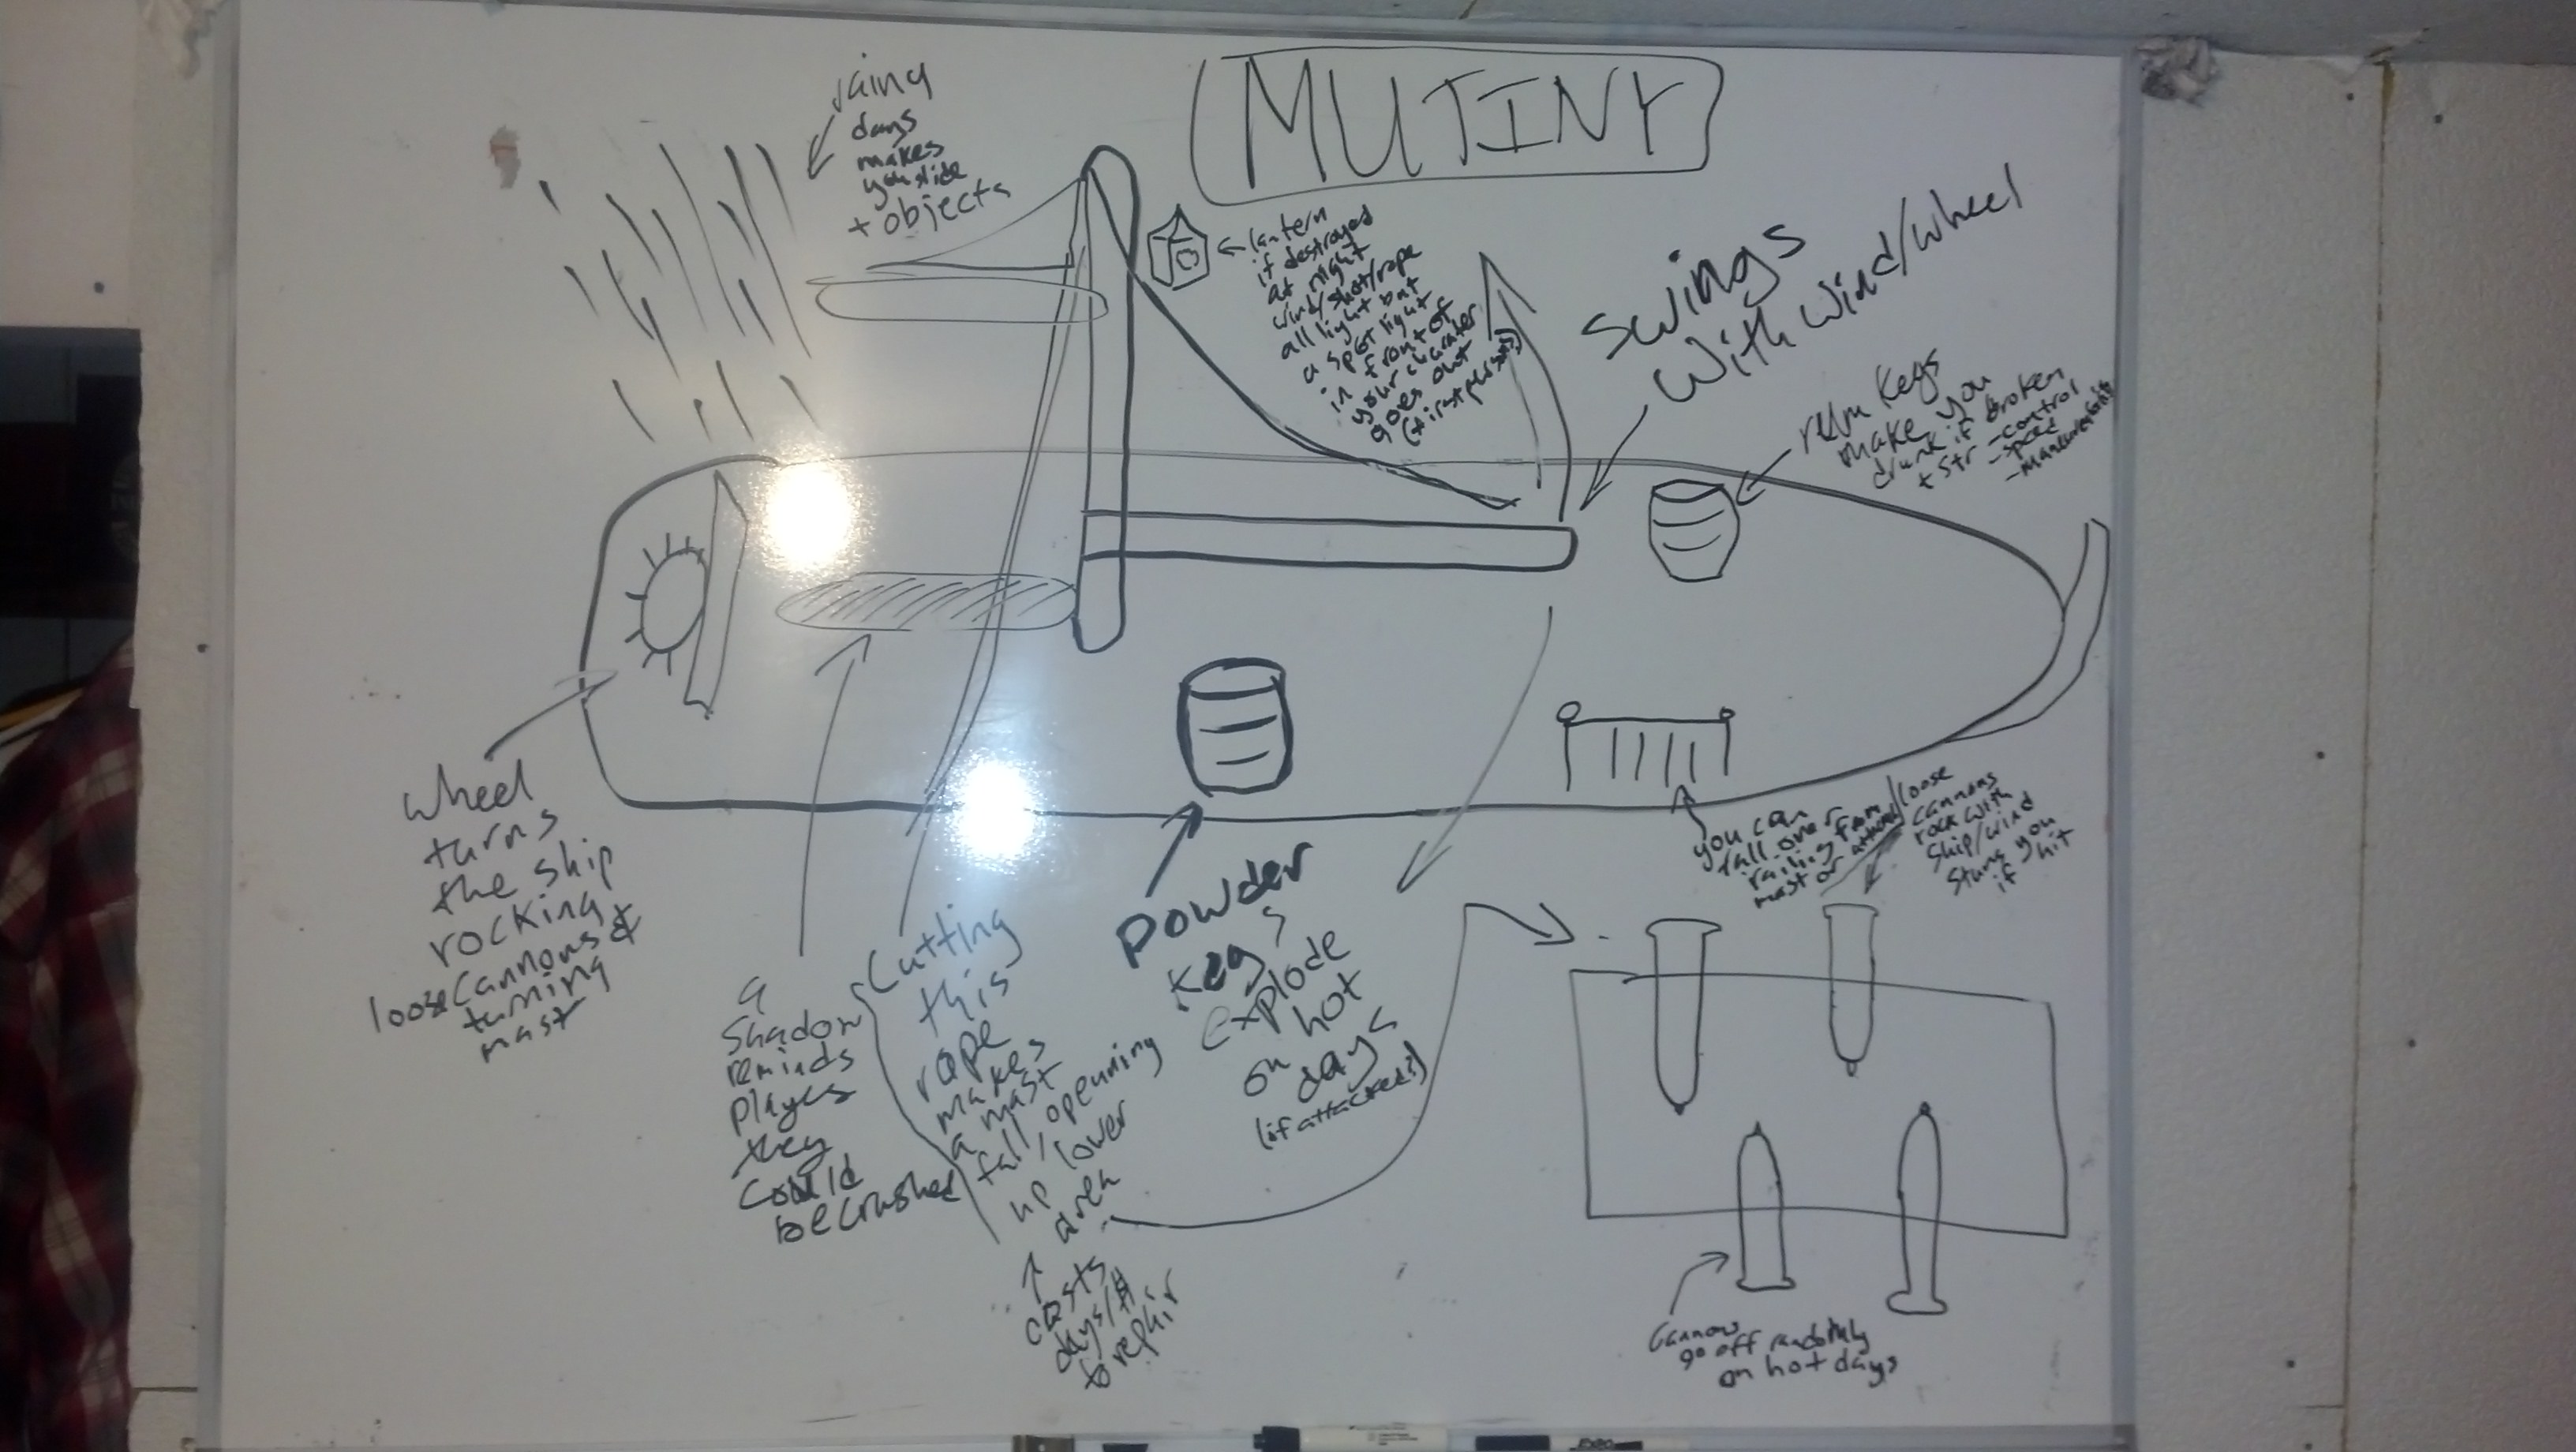 MUTINY
rainy
days
makes
you slide
+ objects
lantern
if destroyed
at night
wind/shot/rope
all light but
a spot light
in front of
your charater
goes out
(first person)
swings
with wind/wheel
rum kegs
make you
drunk if broken
+ str -control
-speed
wheel
turns
the ship
rocking
loose cannons &
turning
mast
a
shadow
reminds
players
they
could
be crushed
Cutting
this
rope
makes
a mast
fall/opening
up lower
area
costs
days/#
to repair
powder
kegs
explode
on hot
days
(if attacked)
you can
fall over
railing from
mast or attack
loose
cannons
rock with
ship/wind
stuns you
if hit
Cannons
go off randomly
on hot days